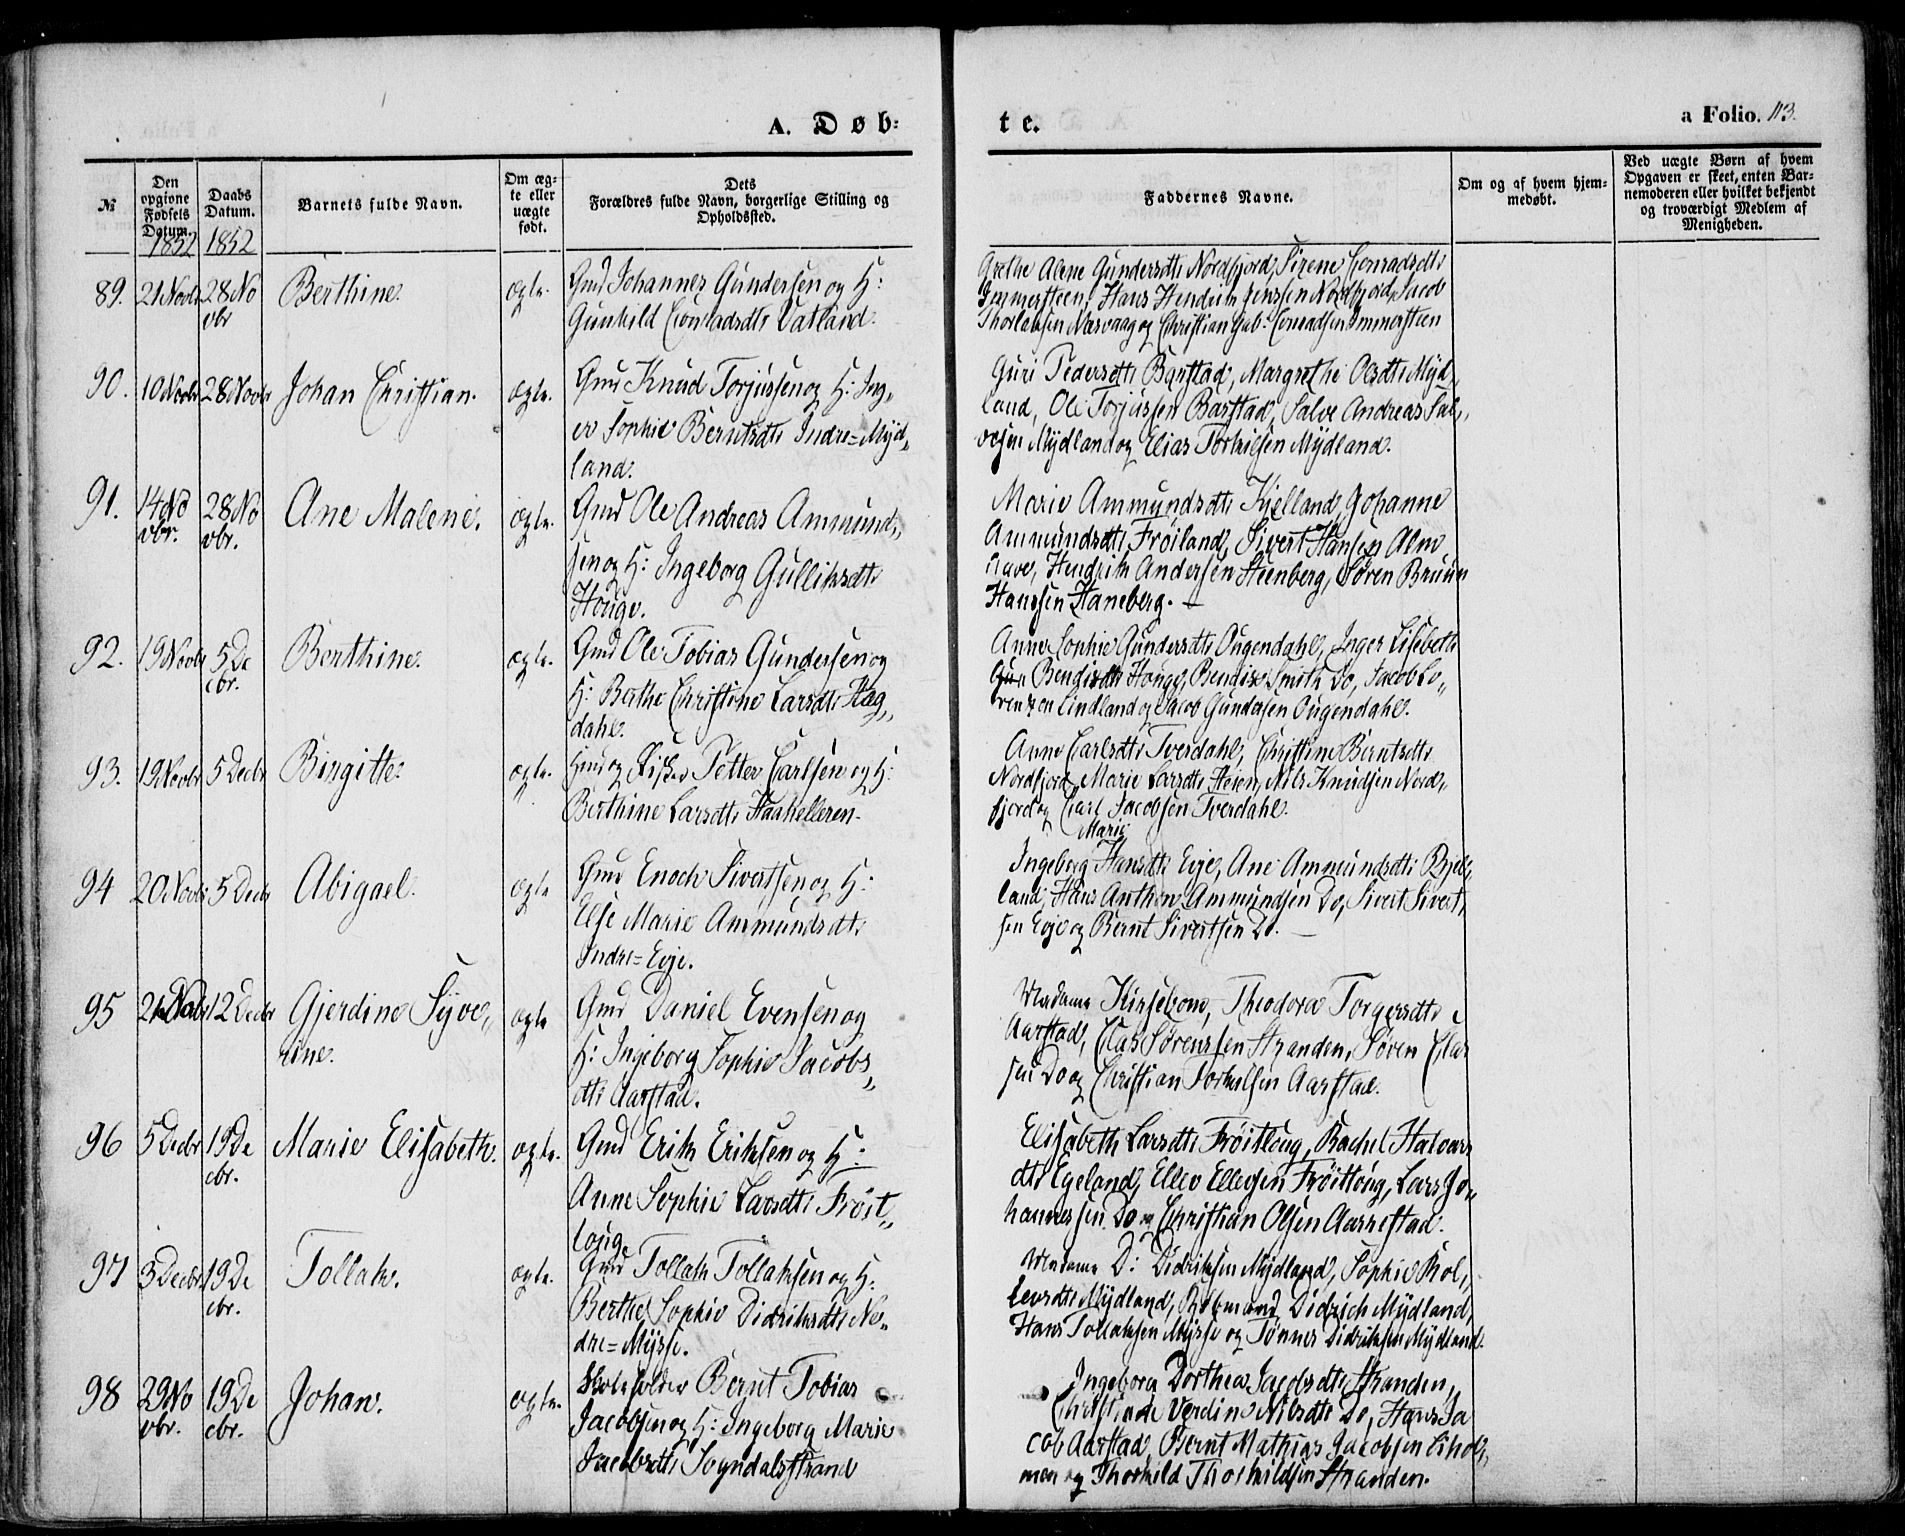 A. Døb=
te.
a Folio. 113.
№
Den opgivne Fødsels Datum.
1852
Daabs Datum.
1852
Barnets fulde Navn.
Om ægte eller uægte født.
Dets
Forældres fulde Navn, borgerlige Stilling og
Opholdssted.
Faddernes Navne.
Om og af hvem hjem-
medøbt.
Ved uægte Børn af hvem
Opgaven er skeet, enten Bar-
nemoderen eller hvilket bekjendt
og troværdigt Medlem af
Menigheden.
89. 21 Novbr 28 No
vbr
Berthine. ægte. Gmd Johannes Gundersen og H:
Gunhild Conradsdtr Vatland.
Grethe Alene Gundersdtr Nordfjord, Sirene Conradsdtr
Immersteen, Hans Hendrik Jenssen Nordfjord, Jacob
Thorlaksen Næsvaag og Christian Gab: Conradsen Immersteen
90. 10 Novbr 28 Novbr Johan Christian. ægte. Gmd Knud Torjussen og H: Ing„
er Sophie Berntsdtr Indre=Myd„
land.
Guri Pedersdtr Barstad, Margrethe Olsdtr Myd„
land, Ole Torjussen Barstad, Salve Andreas Sal„
vesen Mydland og Elias Torkelsen Mydland.
91. 14 No
vbr. 28 No
vbr. Ane Malene. ægte. Gmd Ole Andreas Ammund„
sen og H: Ingeborg Gulliksdtr
Houge.
Marie Ammundsdtr Kjelland, Johanne
Ammundsdtr Frøiland, Sivert Hansen Alm
, Hendrik Andersen Steenberg, Søren Bruun
Hanssen Haneberg. —
92. 19 Novbr 5 De
cbr. Berthine. ægte. Gmd Ole Tobias Gundersen og
H: Berthe Christine Larsdtr Hæg„
dahl.
Anne Sophie Gundersdtr Ougendahl, Inger Lisebeth
Bendixdtr Houge, Bendix Smith Do, Jacob Lo„
rentzen Lindland og Jacob Gundersen Ougendahl.
93. 19 Novbr 5 Decbr Birgitte. ægte. Huus og Fisker Petter Carlsen og H:
Berthine Larsdtr Haahelleren.
Anne Carlsdtr Tverdahl, Christine Berntsdtr
Nordfjord, Marie Larsdtr Heien, Nils Knudsen Nord„
fjord og Carl Jacobsen Tverdahl.
94 20 Novbr 5 Decbr Abigael. ægte Gmd Enoch Sivertsen og H:
Else Marie Ammundsdtr
Indre=Eeje.
Marie
Ingeborg Hansdtr Eeje, Ane Ammundsdtr Kjel„
land, Hans Anthon Ammundsen Do, Sivert Sivert„
sen Eeje og Bernt Sivertsen Do. —
95 12 Decbr Gjerdine Syve„
rine. ægte Gmd Daniel Evensen og
H: Ingeborg Sophie Jacobs„
dtr Aarstad.
Madame Kirsebom, Theodora Torgersdtr
Aarstad, Clas Sørenssen Stranden, Søren Clas
sen Do og Christian Torkelsen Aarstad.
96 5 Decbr 19 De
cbr. Marie Elisabeth. ægte. Gmd Erik Eriksen og H:
Anne Sophie Larsdtr Frøit„
loug.
Elisabeth Larsdtr Frøitloug, Rachel Halvors
dtr Egeland, Ellev Ellevsen Frøitloug, Lars Jo„
hannessen Do og Christian Olsen Aarrestad.
97 3 Decbr 19 De
cbr. Tollak. ægte. Gmd Tollak Tollaksen og H:
Berthe Sophie Didriksdtr Ne„
dre=Mysse.
Madame D: Didriksen Mydland, Sophie Rol„
levsdtr Mydland, Kjøbmand Didrich Mydland,
Hans Tollaksen Mysse og Tønnes Didriksen Mydland.
98 29 No
vbr. 19 De
cbr. Johan. ægte. Skoleholder Bernt Tobias
Jacobsen og H: Ingeborg Marie
Jacobsdtr Sogndalsstrand
Ingeborg Dorthea Jacobsdtr Stranden,
Christiane Verdine Nilsdtr Do, Hans Ja
cob Aarstad, Bernt Mathias Jacobsen Lihol„
men og Thorkild Thorkildsen Stranden.